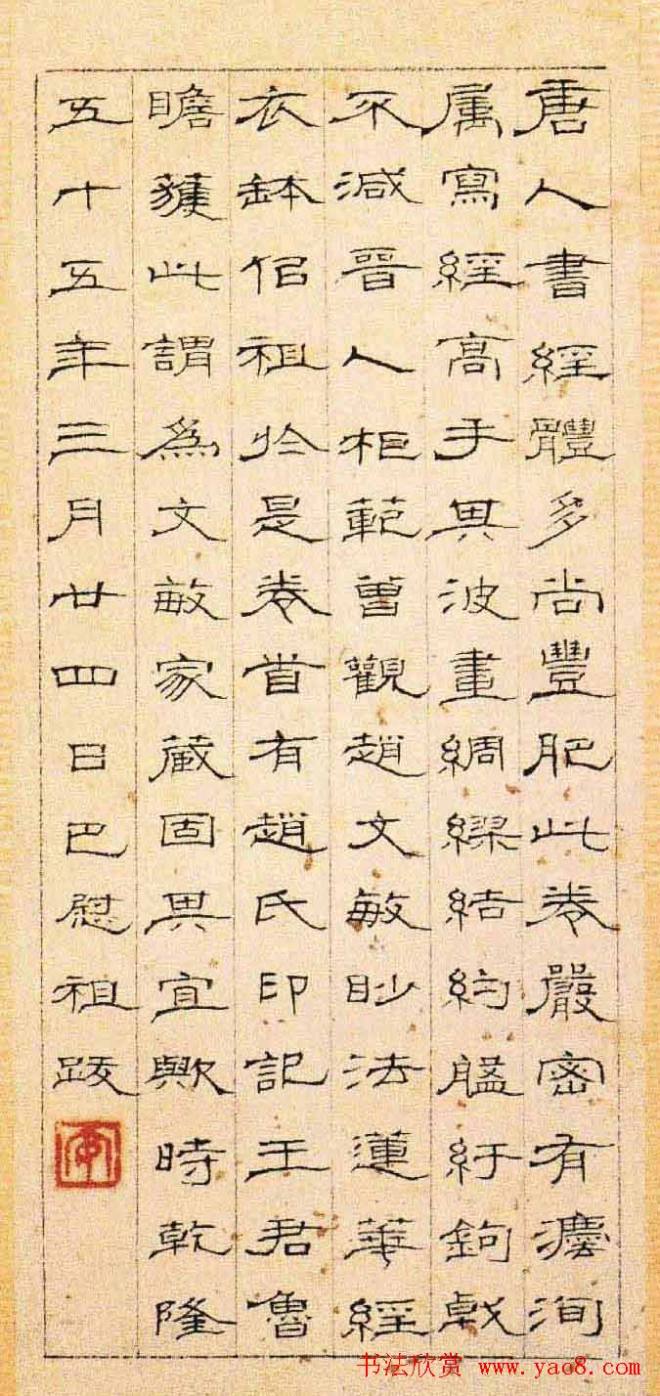 唐人書經體多尚豐肥此卷嚴密有灋洵
属寫經高手其波畫綢繆結約紆鉤戟
不減晉人柜範曾觀趙文敏眇法蓮華經
衣鉢佀祖於是卷首有趙氏印記王君魯
瞻獲此謂爲文敏家藏固其宜歟時乾隆
五十五年三月廿四日巴慰祖跋
书法欣赏 www.yac8.com